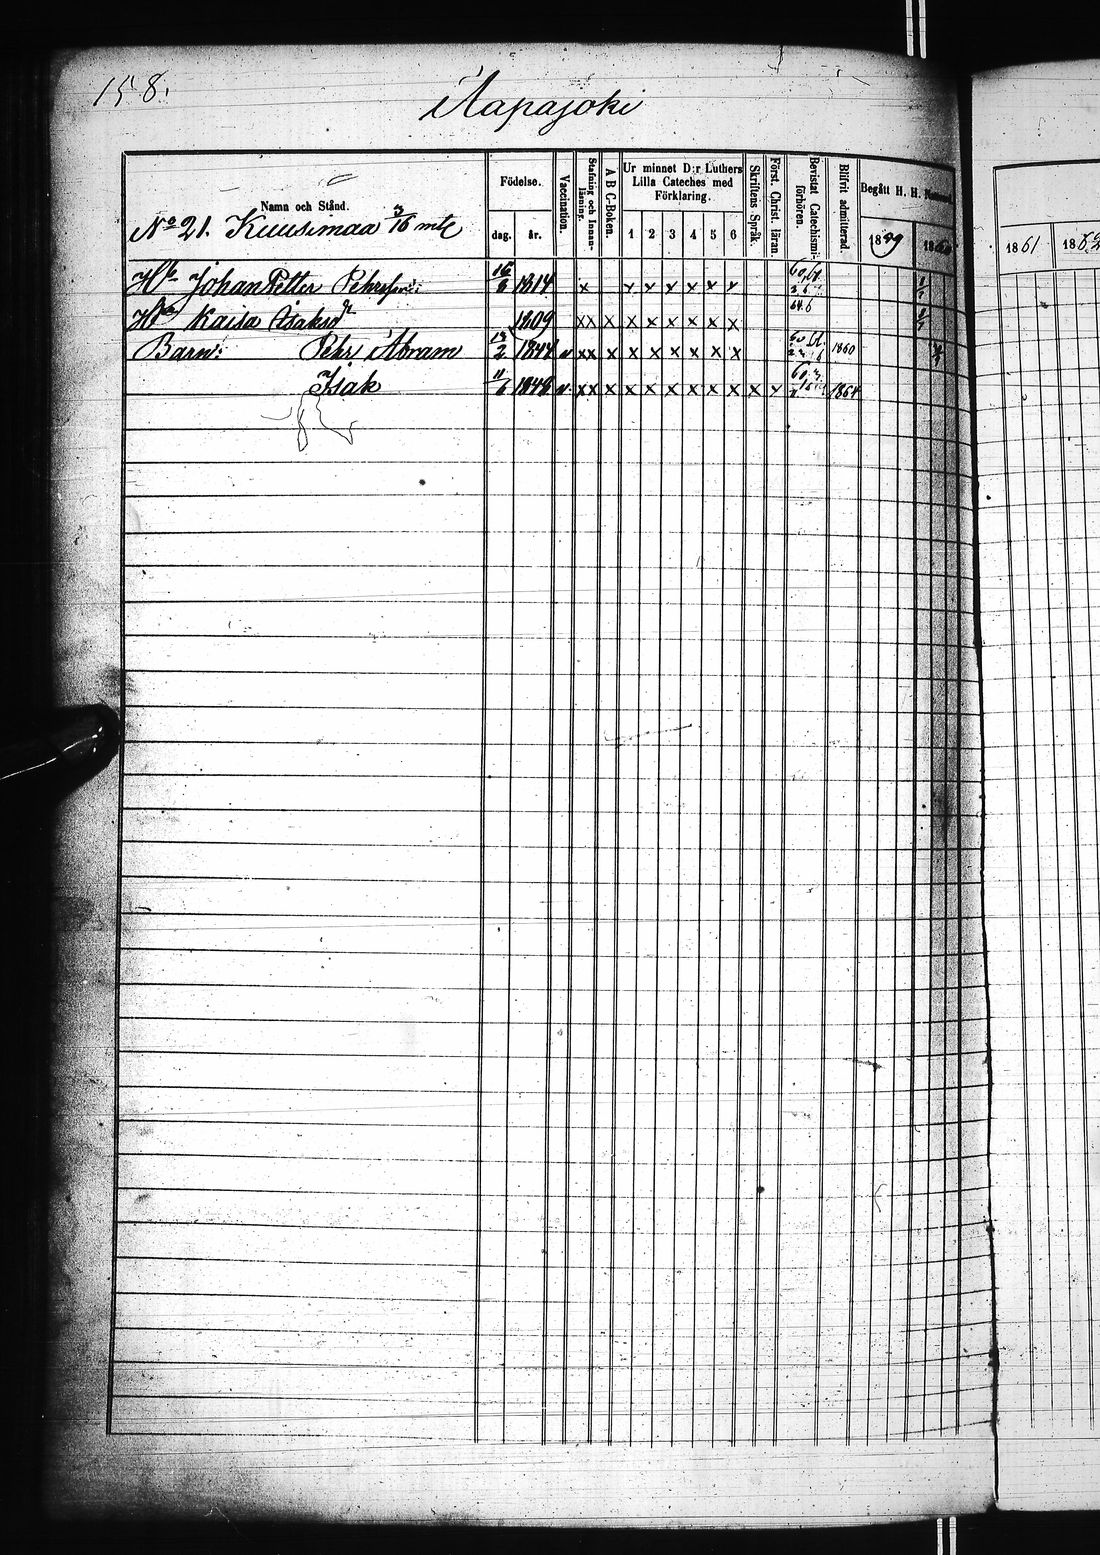 158.
Aapajoki
Namn och Stånd.
Födelse.
dag.
år.
Vaccination.
Stafning och Innanläsning.
A B C-Boken.
Ur minnet D:r Luthers Lilla Cateches med Förklaring.
1 2 3 4 5 6
Skriftens Språk.
Först. Christ. läran.
Bevistat Catechismiförhören.
Blifvit admitterad.
Begått H. H.
1859 1860
1861 1862
No 21. Kuusimaa 3/16 mtl
Hb Johan Petter Pehrsson 16/6 1814 x x x x x x x
Kaisa Isaksdr 1809 x x x x x x x x x 64.6
Barn: Pehr Abram 13/2 1844 v x x x x x x x x x 1860
Isak 11/6 1848 v x x x x x x x x x x x 1864